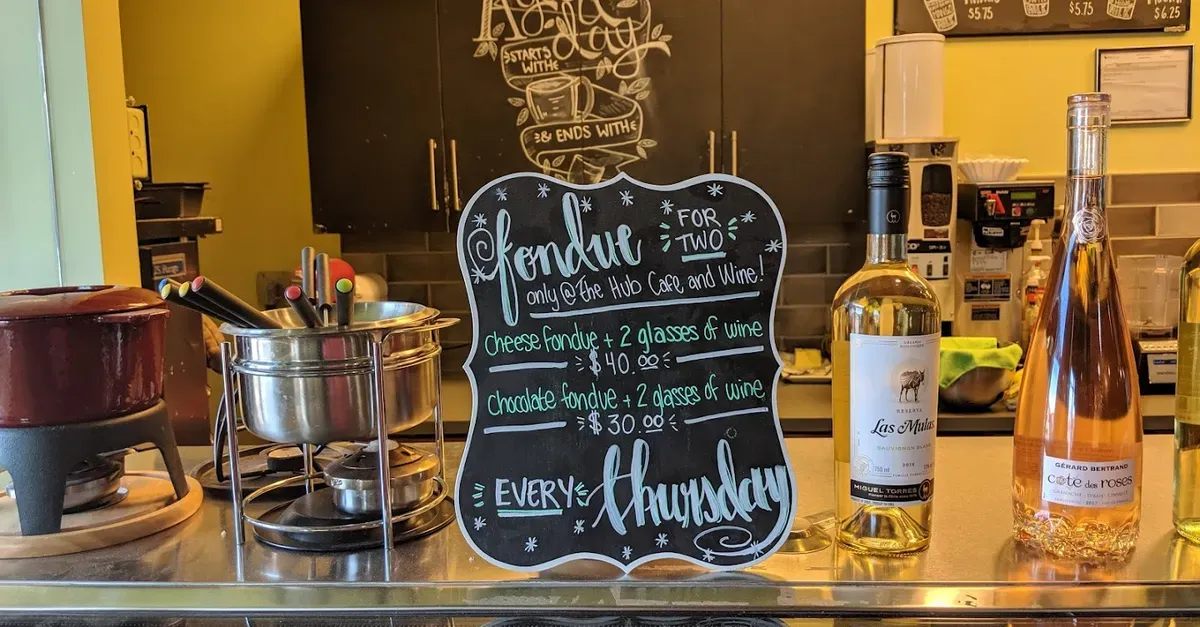 A good day
STARTS
WITH
& ENDS WITH
$5.75
$5.75
$6.25
fondue
FOR
TWO
only @ The Hub Cafe and Wine!
cheese fondue + 2 glasses of wine
$40.00
chocolate fondue + 2 glasses of wine
$30.00
EVERY thursday
RESERVA
Las Mulas
SAUVIGNON BLANC
750 ml
MIGUEL TORRES
GÉRARD BERTRAND
cote des roses